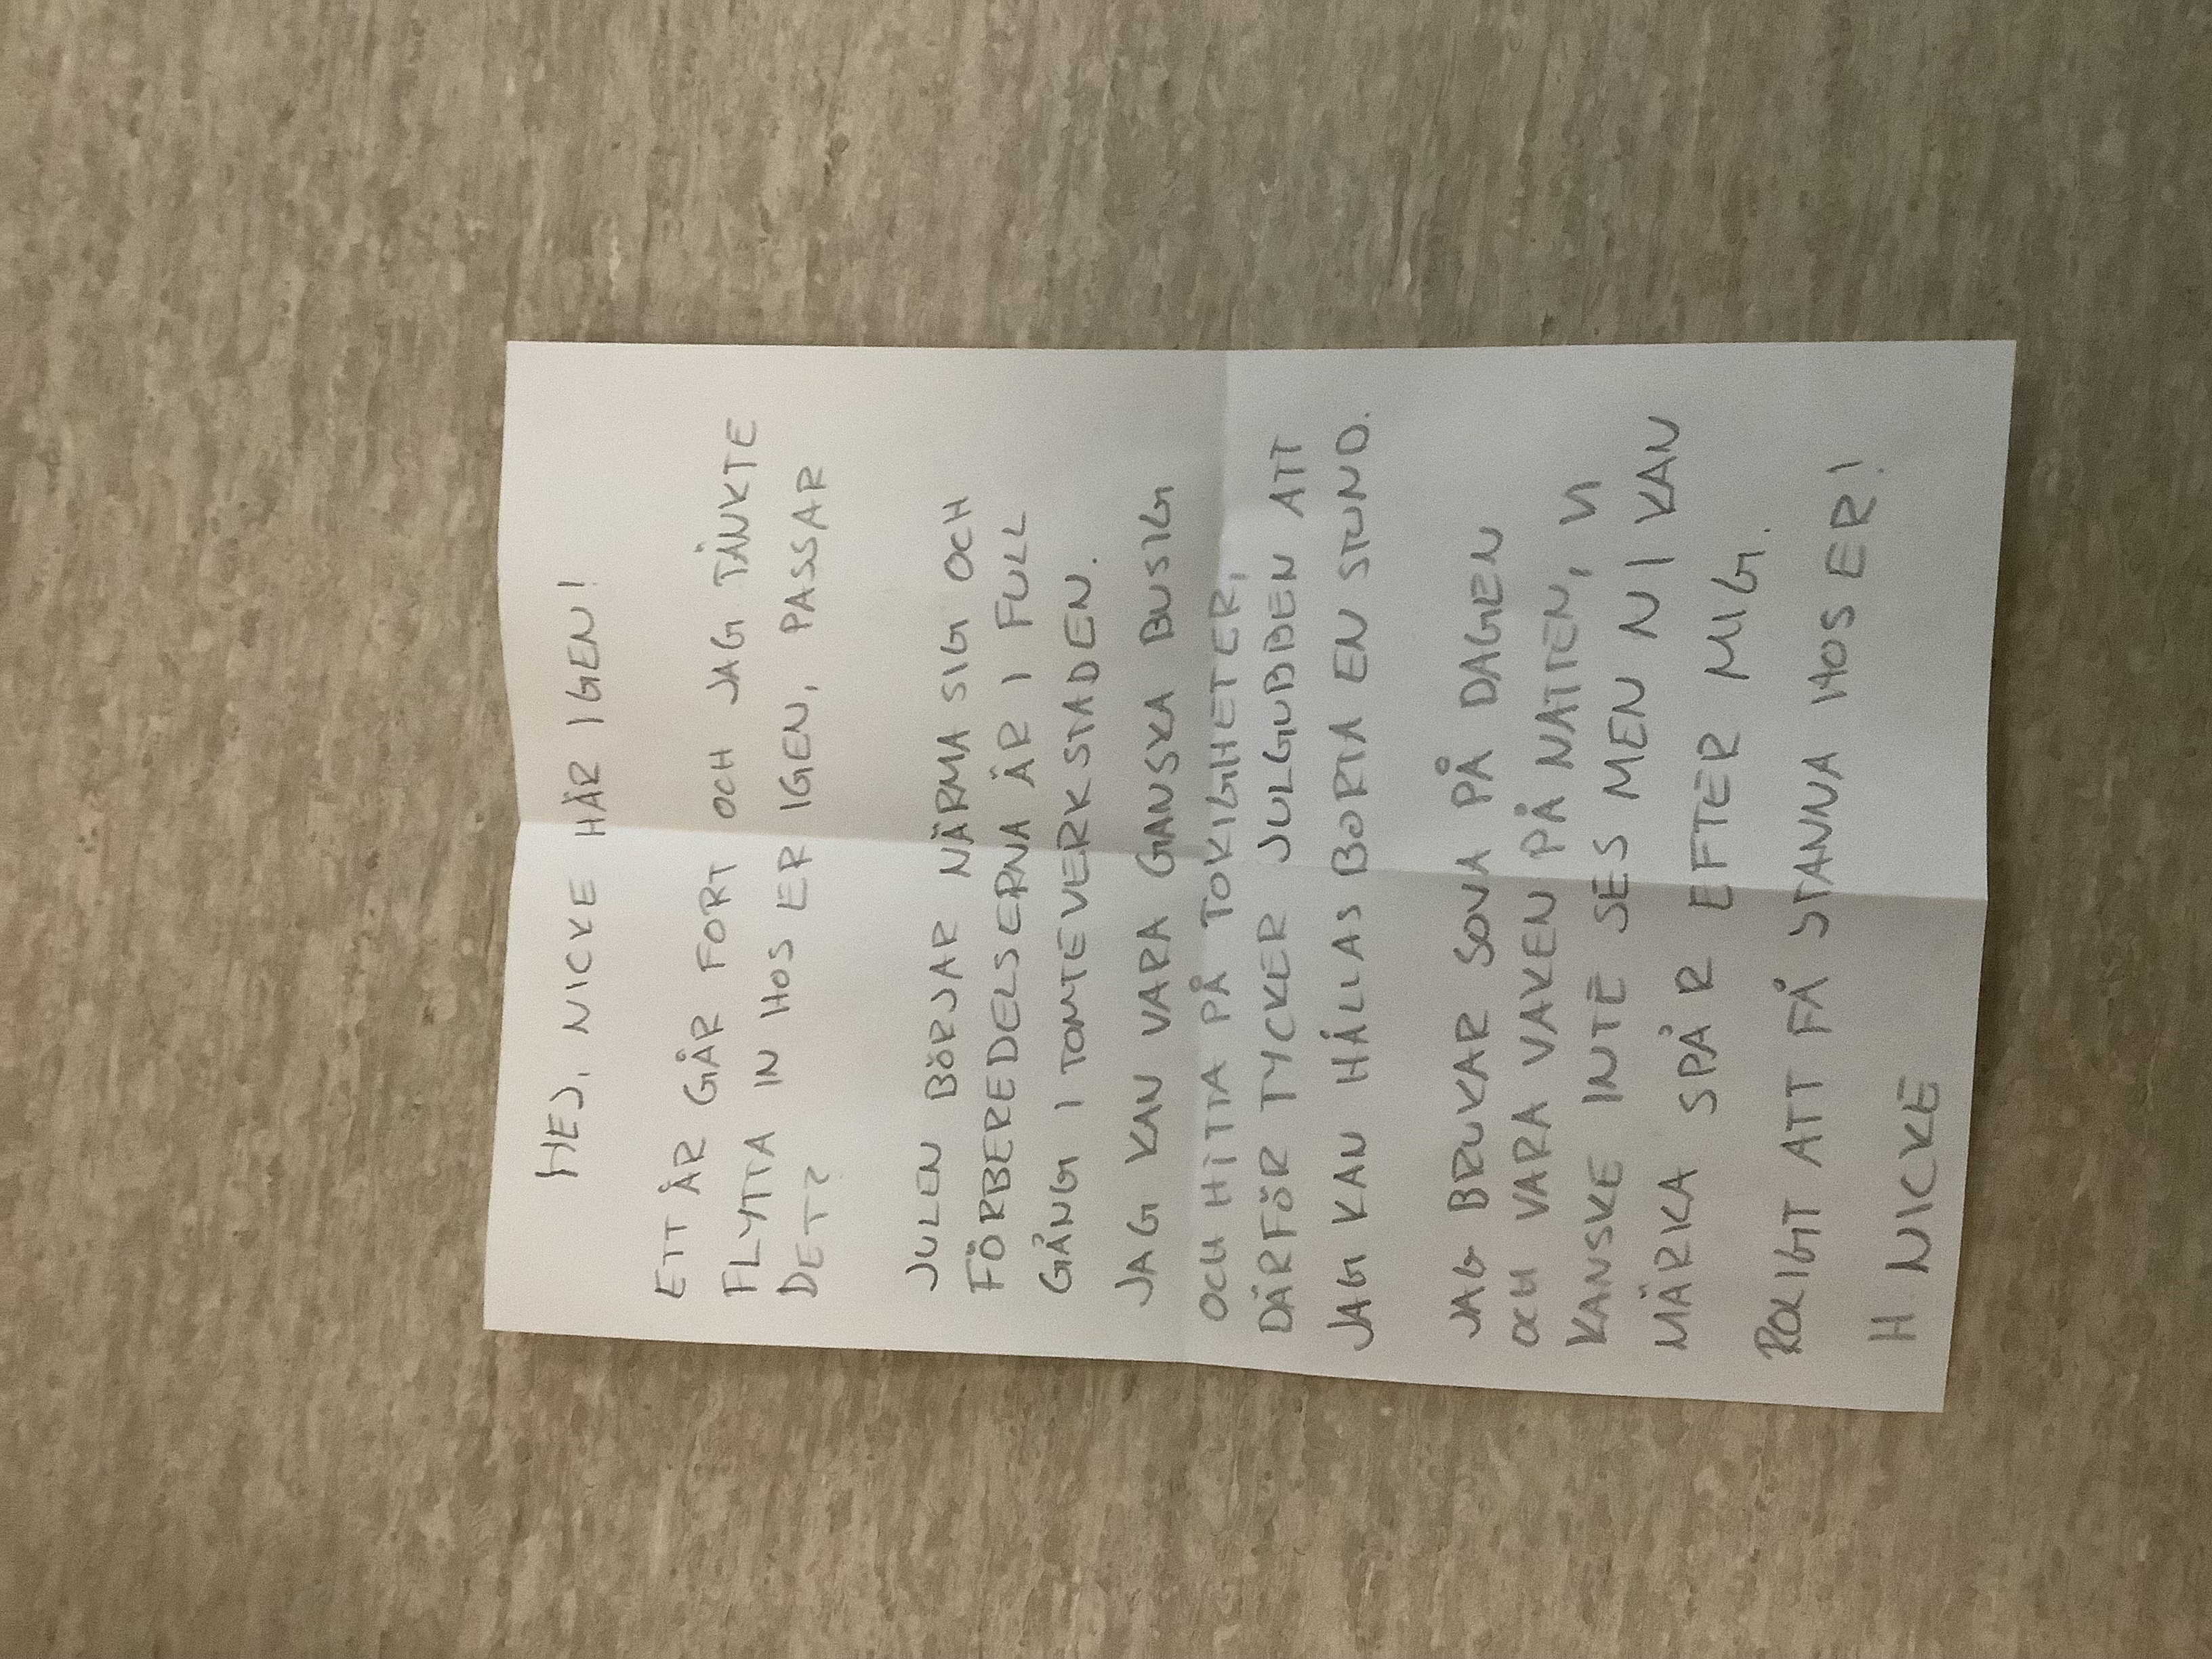 HEJ, NICKE HÄR IGEN!
ETT ÅR GÅR FORT OCH JAG TÄNKTE
FLYTTA IN HOS ER IGEN, PASSAR
DET?
JULEN BÖRJAR NÄRMA SIG OCH
FÖRBEREDELSERNA ÄR I FULL
GÅNG I TOMTEVERKSTADEN.
JAG KAN VARA GANSKA BUSIG
OCH HITTA PÅ TOKIGHETER,
DÄRFÖR TYCKER JULGUBBEN ATT
JAG KAN HÅLLAS BORTA EN STUND.
JAG BRUKAR SOVA PÅ DAGEN
OCH VARA VAKEN PÅ NATTEN, VI
KANSKE INTE SES MEN NI KAN
MÄRKA SPÅR EFTER MIG.
ROLIGT ATT FÅ STANNA HOS ER!
H NICKE